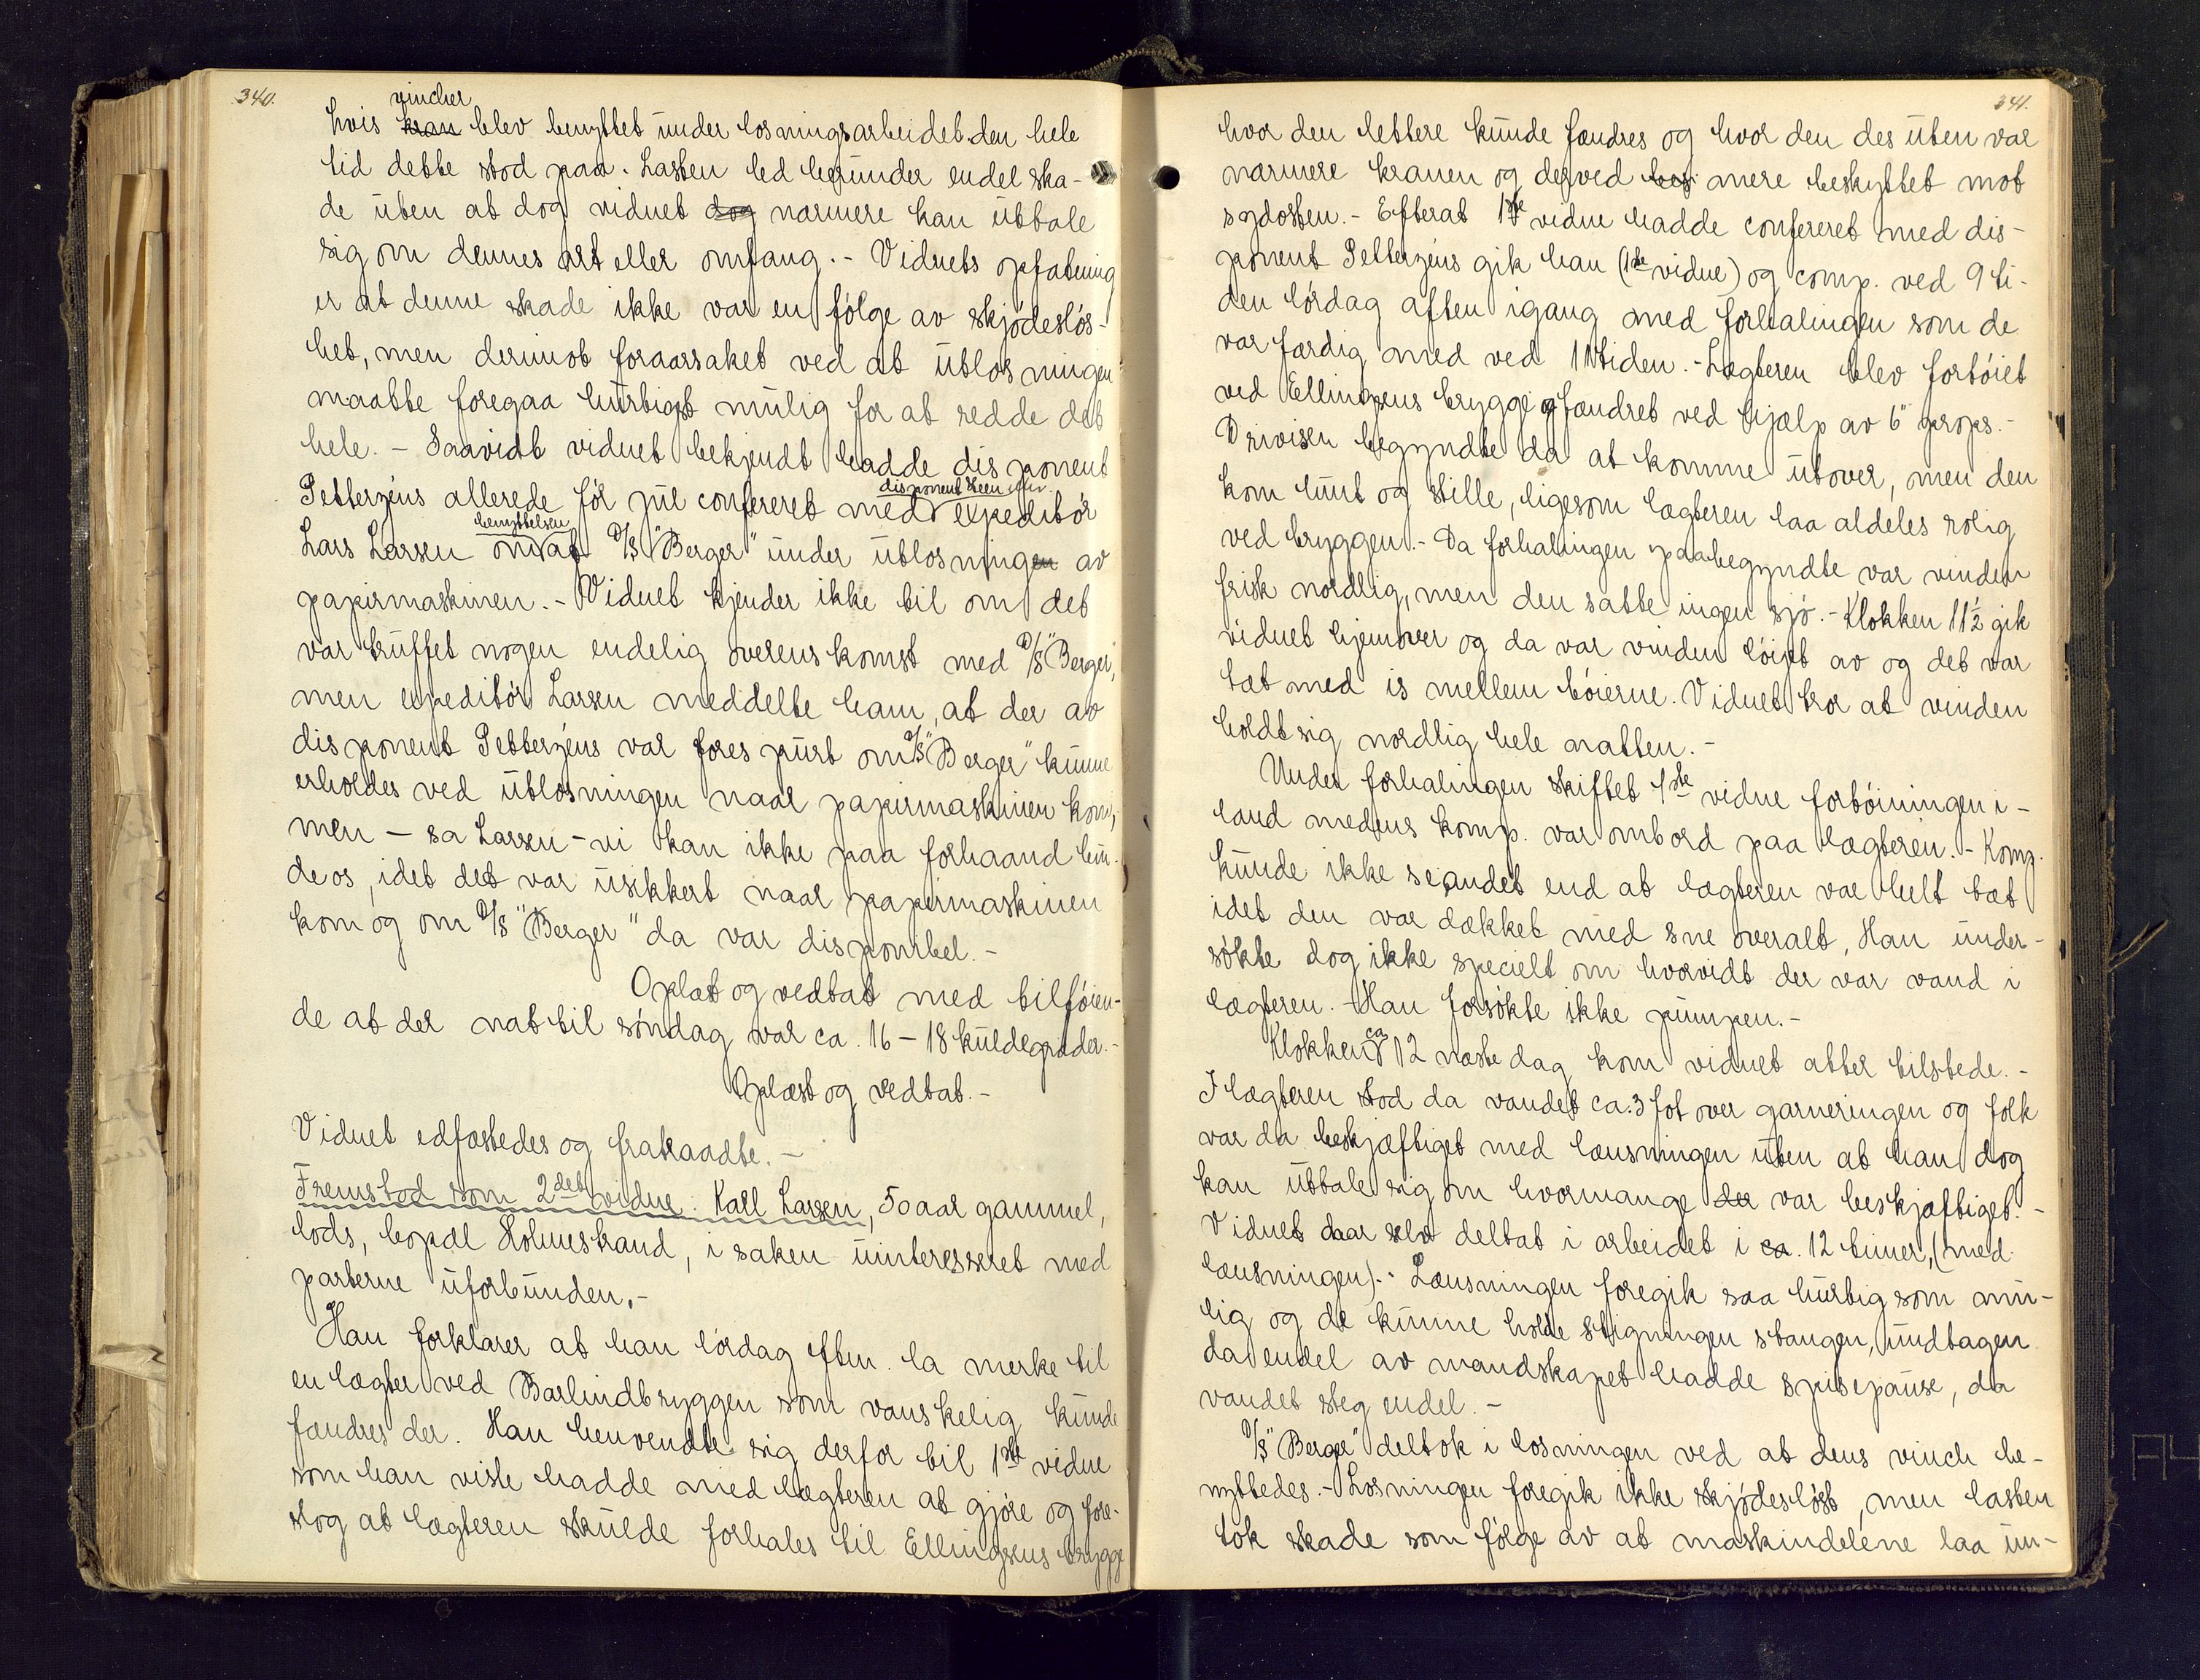 340.
vincher
hvis kran blev benyttet under losningsarbeidet den hele
tid dette stod paa. Lasten led herunder endel ska-
de uten at dog vidnet dog nærmere kan uttale
sig om dennes art eller omfang. - Vidnets opfatning
er at denne skade ikke var en følge av skjødesløs-
het, men derimot foraarsaket ved at utlosningen
maatte foregaa hurtigst mulig for at redde det
hele. - Saavidt vidnet bekjendt hadde disponent
disponent Steen eller
Petterzéns allerede før jul confereret med expeditør
benyttelsen
Lars Larsen om af D/S "Berger" under utlosningen av
papirmaskinen. - Vidnet kjender ikke til om det
var truffet nogen endelig overenskomst med D/S "Berger",
men expeditør Larsen meddelte ham, at der av
disponent Petterzéns var forespurt om D/S "Berger" kunne
erholdes ved utlosningen naar papirmaskinen kom,
men - sa Larsen - vi kan ikke paa forhaand bin-
de os, idet det var usikkert naar papirmaskinen
kom og om D/S "Berger" da var disponibel. -
Oplæst og vedtat med tilføien-
de at der nat til søndag var ca. 16 - 18 kuldegrader. -
Oplæst og vedtat. -
Vidnet edfæstedes og fratraadte. -
Fremstod som 2det vidne: Karl Larsen, 50 aar gammel,
lods, bopæl Holmestrand, i saken uinteresseret med
parterne uforbunden. -
Han forklarer at han lørdag eftm. la merke til
en lægter ved Barlindbryggen som vanskelig kunde
fændres der. Han henvendte sig derfor til 1ste vidne
som han viste hadde med lægteren at gjøre og fore-
slog at lægteren skulde forhales til Ellingsens brygge
341.
hvor den lettere kunde fændres og hvor den des uten var
nærmere kranen og derved bes mere beskyttet mot
sydosten. - Efterat 1ste vidne hadde confereret med dis-
ponent Petterzéns gik han (1ste vidne) og comp. ved 9 ti-
den lørdag aften igang med forhalingen som de
var færdig med ved 11 tiden. - Lægteren blev fortøiet
ved Ellingsens brygge og fændret ved hjælp av 6" props. -
Drivisen begyndte da at komme utover, men den
kom lunt og stille, ligesom lægteren laa aldeles rolig
ved bryggen. - Da forhalingen paabegyndte var vinden
frisk nordlig, men den satte ingen sjø. - Klokken 11½ gik
vidnet hjemover og da var vinden løiet av og det var
tæt med is mellem bøierne. Vidnet tror at vinden
holdt sig nordlig hele natten. -
Under forhalingen skiftet 1ste vidne fortøiningen i-
land medens komp. var ombord paa lægteren. - Komp.
kunde ikke se andet end at lægteren var helt tæt
idet den var dækket med sne overalt, Han under-
søkte dog ikke specielt om hvorvidt der var vand i
lægteren. - Han forsøkte ikke pumpen. -
ca
Klokken 12 næste dag kom vidnet atter tilstede. -
I lægteren stod da vandet ca. 3 fot over garneringen og folk
var da beskjæftiget med lænsningen uten at han dog
kan uttale sig om hvormange der var beskjæftiget. -
Vidnet har selv deltat i arbeidet i ca. 12 timer, (med
lænsningen). - Lænsningen foregik saa hurtig som mu-
lig og de kunne holde stigningen stangen, undtagen
da endel av mandskapet hadde spisepause, da
vandet steg endel. -
D/S "Berger" deltok i losningen ved at dens vinch be-
nyttedes. - Losningen foregik ikke skjødesløst, men lasten
tok skade som følge av at maskindelene laa un-